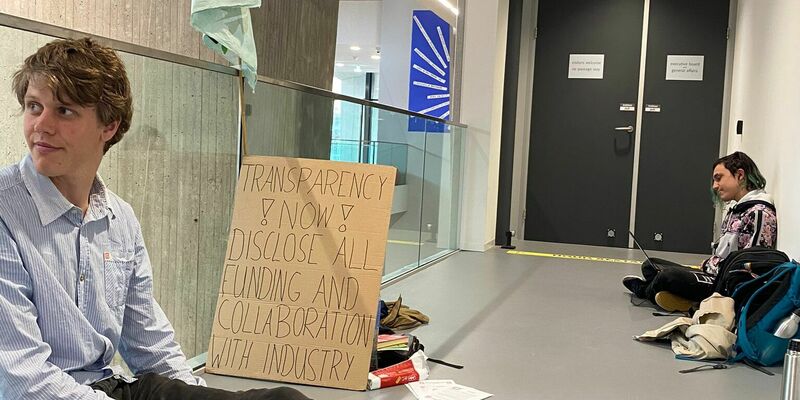 TRANSPARENCY
! NOW !
DISCLOSE ALL
FUNDING AND
COLLABORATION
WITH INDUSTRY
visitors welcome
executive board
general affairs